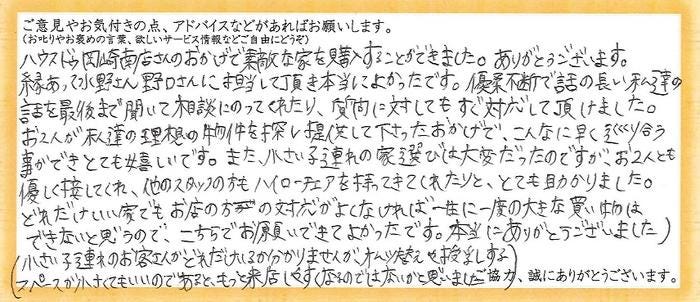 ご意見やお気付きの点、アドバイスなどがあればお願いします。
(お叱りやお褒めの言葉、欲しいサービス情報などご自由にどうぞ)
ハウスドゥ岡崎南店さんのおかげで素敵な家を購入することができました。ありがとうございます。
縁あって水野さん野口さんに担当して頂き本当によかったです。優柔不断で話の長い私達の
話を最後まで聞いて相談にのってくれたり、質問に対してもすぐ対応して頂けました。
お2人が私達の理想の物件を探し提供して下さったおかげで、こんなに早く巡り合う
事ができとても嬉しいです。また、小さい子連れの家選びは大変だったのですが、お2人とも
優しく接してくれ、他のスタッフの方もハイローチェアを持ってきてくれたりと、とても助かりました。
どれだけいい家でもお店の方の対応がよくなければ一生に一度の大きな買い物は
できないと思うので、こちらでお願いできてよかったです。本当にありがとうございました
(小さい子連れのお客さんがどれだけいるか分かりませんが、オムツ替えや授乳する
スペースが小さくてもいいのであると、もっと来店しやすくなるのではないかと思いました)
ご協力、誠にありがとうございます。